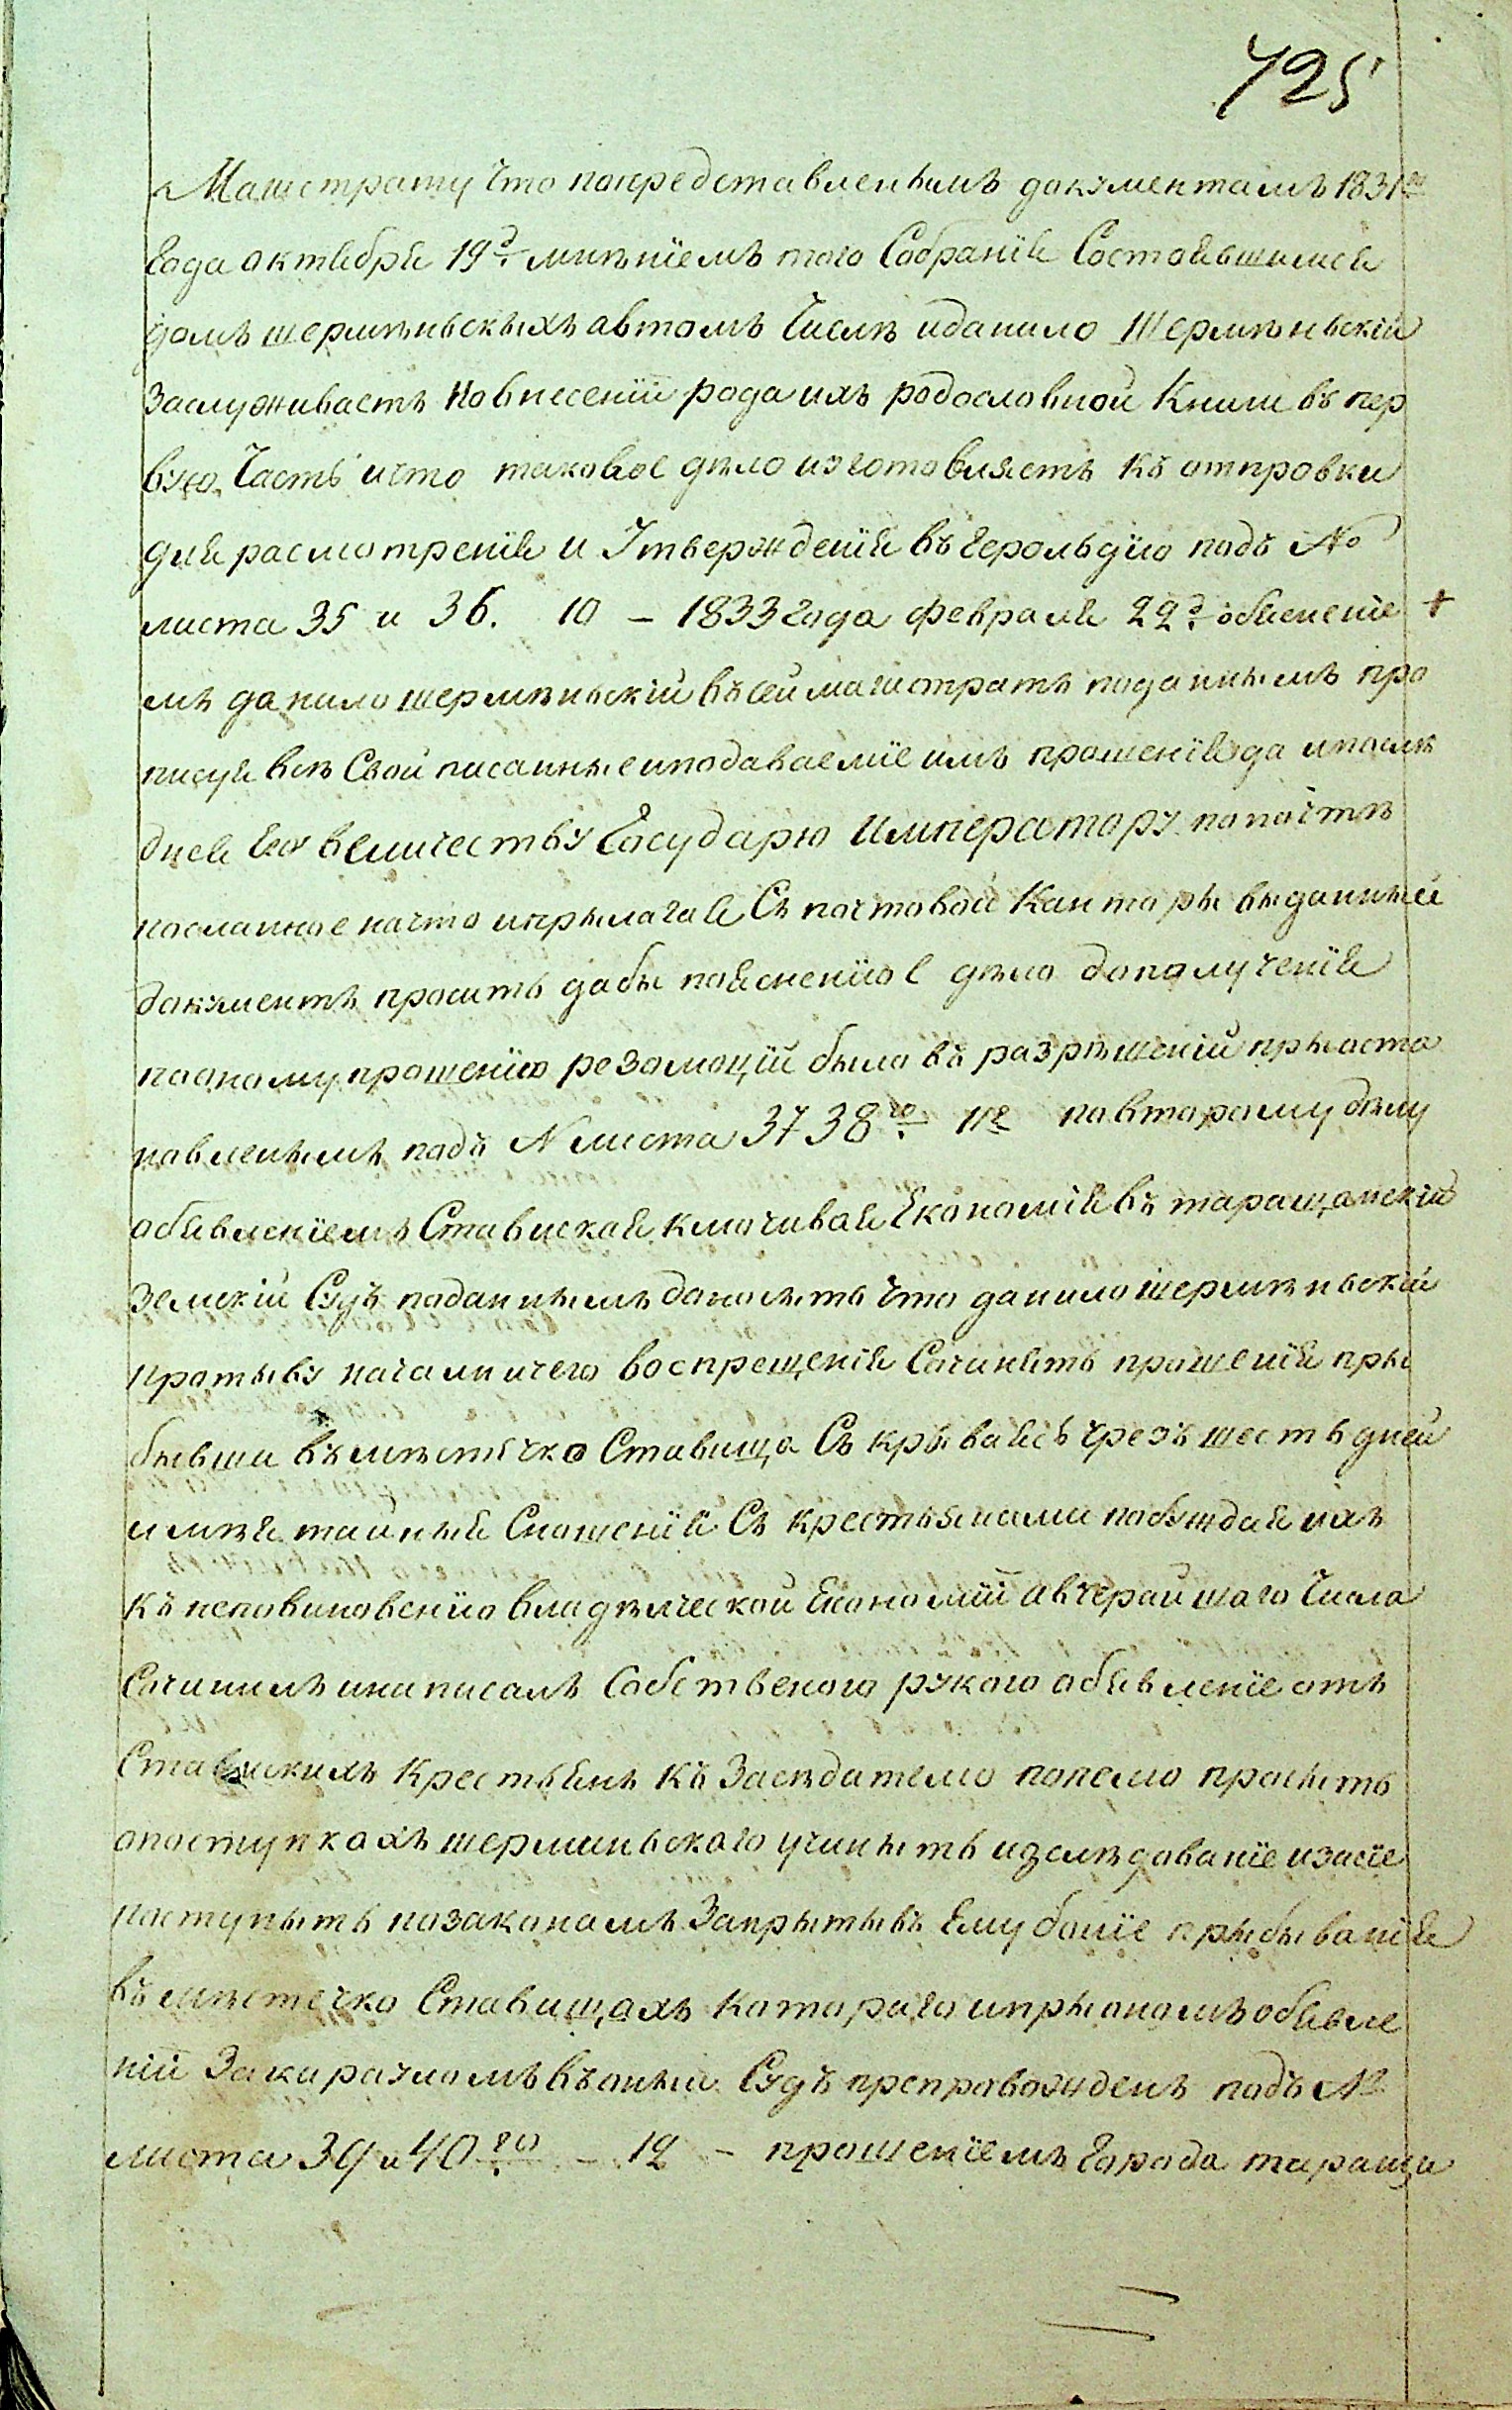 725
Магистрату что попредставленымъ документамъ 1831го
Года октября 19д. мнѣніемъ того Собранія Состоявшимся
домъ шермѣньскыхъ автомъ Числѣ идапило Шермѣньскій
Заслуживаетъ Ковнесенію рода ихъ родословной Книги въ пер
вую Часть ичто таковое дѣло изготовляетъ къ отправки
для расмотренія и Утвержденія въ Герольдію подъ №
листа 35 и 36. 10 – 1833 года февраля 22д. обяснение +
мъ данило шермѣньскій въсей магистратъ поданнымъ про
писуя всѣ Свои писанные иподаваеміе имъ прошенія да ипослѣ
днея Его величеству Государю Императору по почтѣ
посланное начто ипрылагая Съ почтовой Канторы выданный
документъ просить дабы пояснению е дѣло дополученія
по оному прошенію резолюціи было въ разрѣшеніи прыоста
новленымъ подъ № листа 37 38го 11е повторому делу
обявленіемъ Ставиской ключивая Економія въ таращанскій
земскій Судъ поданнымъ доносытъ Что данило шермѣньскій
протыву начальничего воспрещенія Сочинять прошенія пры
бывши въ мѣстѣчко Ставища Съкрываясь чрезъ шесть дней
имѣя тайныя Сношенія Съ крестьянами побуждая ихъ
къ неповиновенію владѣлческой Економіи авчерайшаго Числа
Сочинилъ инаписалъ Собственого рукою обявление отъ
Ставискихъ Крестьянъ къ Засѣдателю попемю просытъ
опоступкахъ шерминьского учинытъ изслѣдованіе изасіе
поступытъ позаконамъ Запрытывъ Ему боліе прыбыванія
въ мѣстечко Ставищахъ Котораго ипрыономъ обявле
ніи Закараулом въоный Судъ препровожденъ подъ №
листа 39 и 40го – 12 – прошеніемъ Города таращи